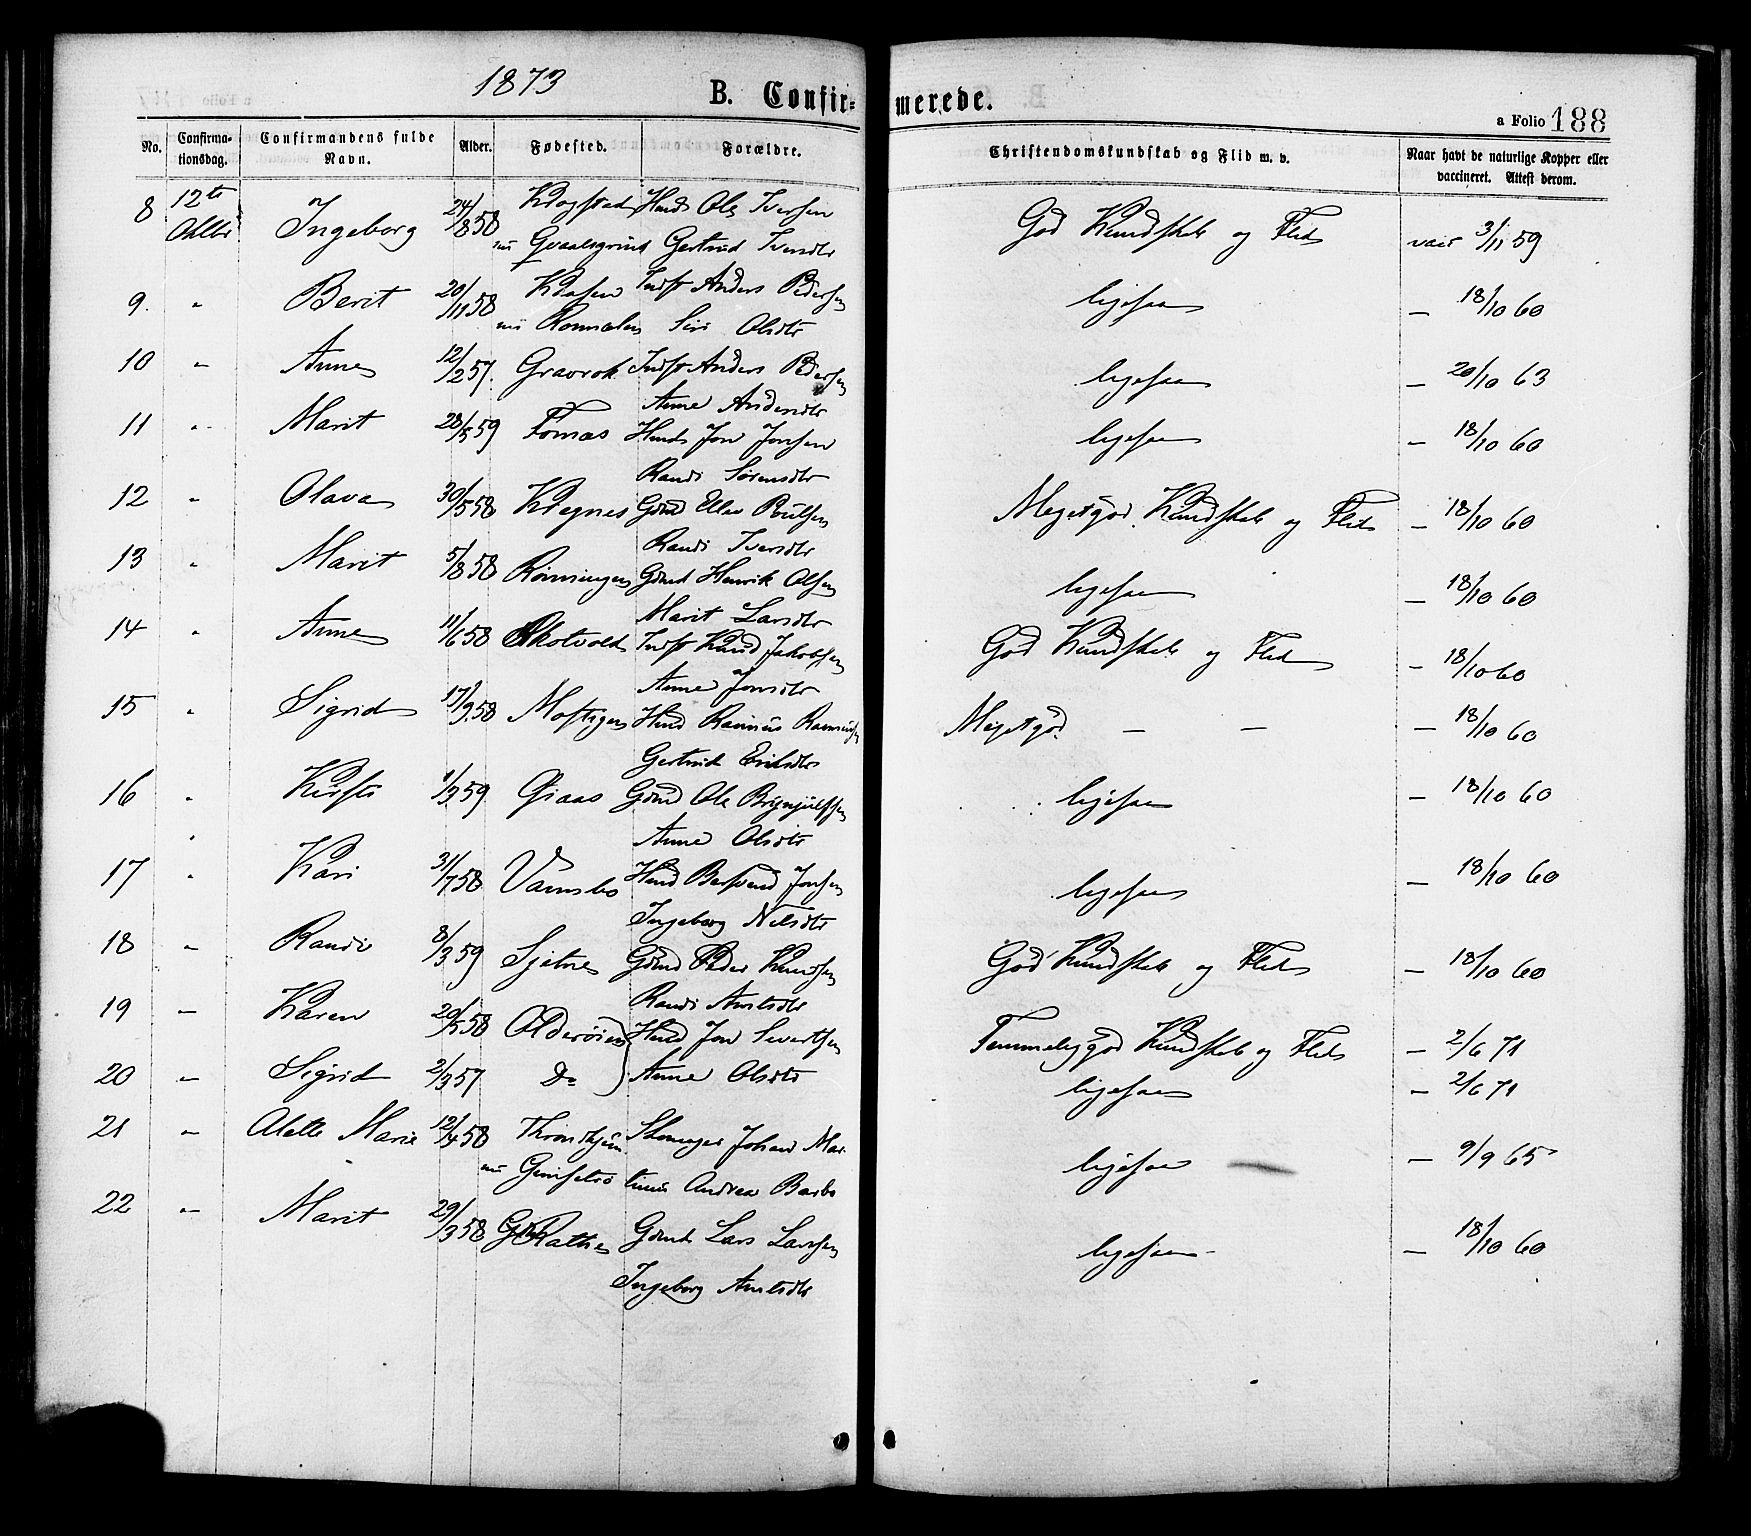 1873
B. Confir=
merede.
a Folio 188
No.
Confirma-
tionsdag.
Confirmandens fulde
Navn.
Alder.
Fødested.
Forældre.
Christendomskundskab og Flid m. v.
Naar havt de naturlige Kopper eller
vaccineret. Attest derom.
8 12te Ingeborg 24/8 58 Krogstad Ole Iversen God Kundskab og Flid vacc 3/11 59
Octbr Gertrud Iversdtr
9. " Berit 20/11 58 Indst Anders Pedersen ligesaa — 18/10 60
nu Siri Olsdtr
10 " Anne 12/2 57. Gravrok Indst Anders Pedersen ligesaa — 20/10 63
Anne Andersdtr
11 " Marit 28/5 59 Tomas Jon Jonsen ligesaa — 18/10 60
Randi Sørensdtr
12 " Olava 30/5 58 Kregnes Gdmd Ellev Poulsen Megetgod Kundskab og Flid — 18/10 60
Randi Iversdtr
13 " Marit 5/8 58 Rønningen Gdmd Henrik Olsen ligesaa — 18/10 60
Marit Larsdtr
14 " Anne 11/6 58 Skotvold Indst Knud Jakobsen God Kundskab og Flid — 18/10 60
Anne Jonsdtr
15 " Sigrid 17/9 58 Mostigen Hmd Rasmus Rasmussen Megetgod — — — 18/10 60
Gertrud Eriksdtr
16 " Kirsti 1/3 59 Gdmd Ole Brynjulfsen ligesaa — 18/10 60
Anne Olsdtr
17 " Kari 31/7 58 Vamsbo Hmd Jonsen ligesaa — 18/10 60
Ingeborg Nilsdtr
18 " Randi 8/3 59 Sjetne Gdmd Peder Knudsen God Kundskab og Flid — 18/10 60
Randi Arntsdtr
19 — Karen 20/5 58 Olderøien Hmd Jon Sivertsen Temmeliggod Kundskab og Flid — 2/6 71
20 — Sigrid 2/3 57 Do Anne Olsdtr ligesaa — 2/6 71
21 — Alette Marie 12/4 58 Throndhjem Skomager Johan Mar- ligesaa — 9/9 65
nu Gimsetrø tinus Andrea Barbo
22 — Marit 29/3 58 Gdmd Lars Larsen ligesaa — 18/10 60
Ingeborg Arntsdtr